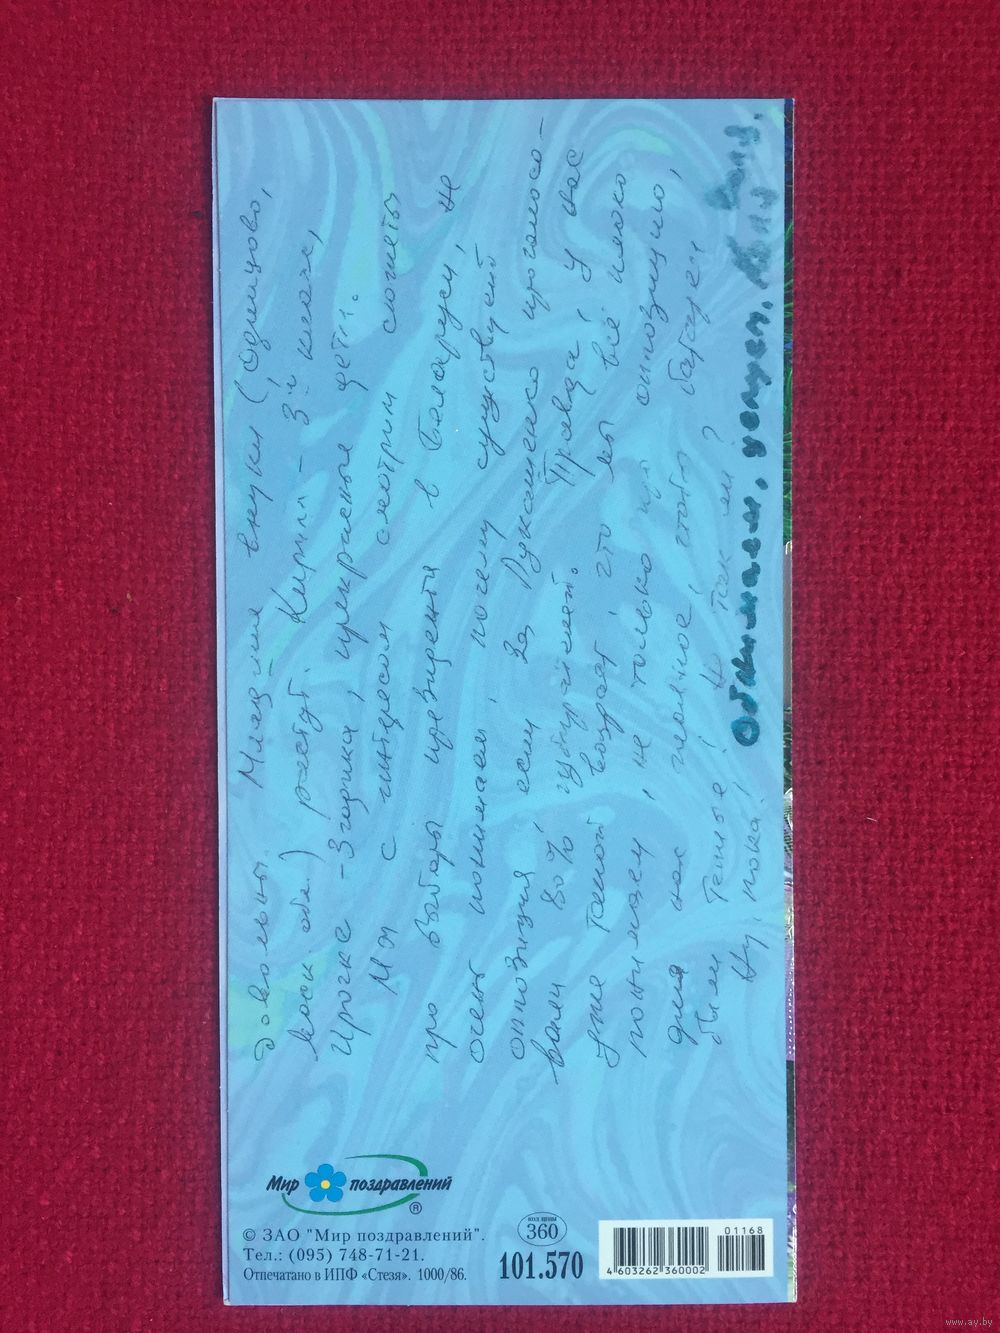 довольны. Младшие внуки (Одинцово,
Моск. обл.) растут. Кирилл – 3й класс,
Ирочке – 3 годика, прекрасные дети.
Мы с интересом смотрим сюжеты
про выборы президента в Беларуси, не
очень понимаем, почему существует
оппозиция, если за Лукашенко проголосо-
вали 80% избирателей. Правда, у нас
уже такой возраст, что мы всё плохо
понимаем, не только про оппозицию,
для нас главное, чтобы батареи
были тёплые! Не так ли?
Ну, пока! Обнимаем, целуем. Валя
Мир поздравлений ®
© ЗАО "Мир поздравлений".
Тел.: (095) 748-71-21.
Отпечатано в ИПФ «Стезя». 1000/86.
360
101.570
01168
4 603262 360002
www.ay.by